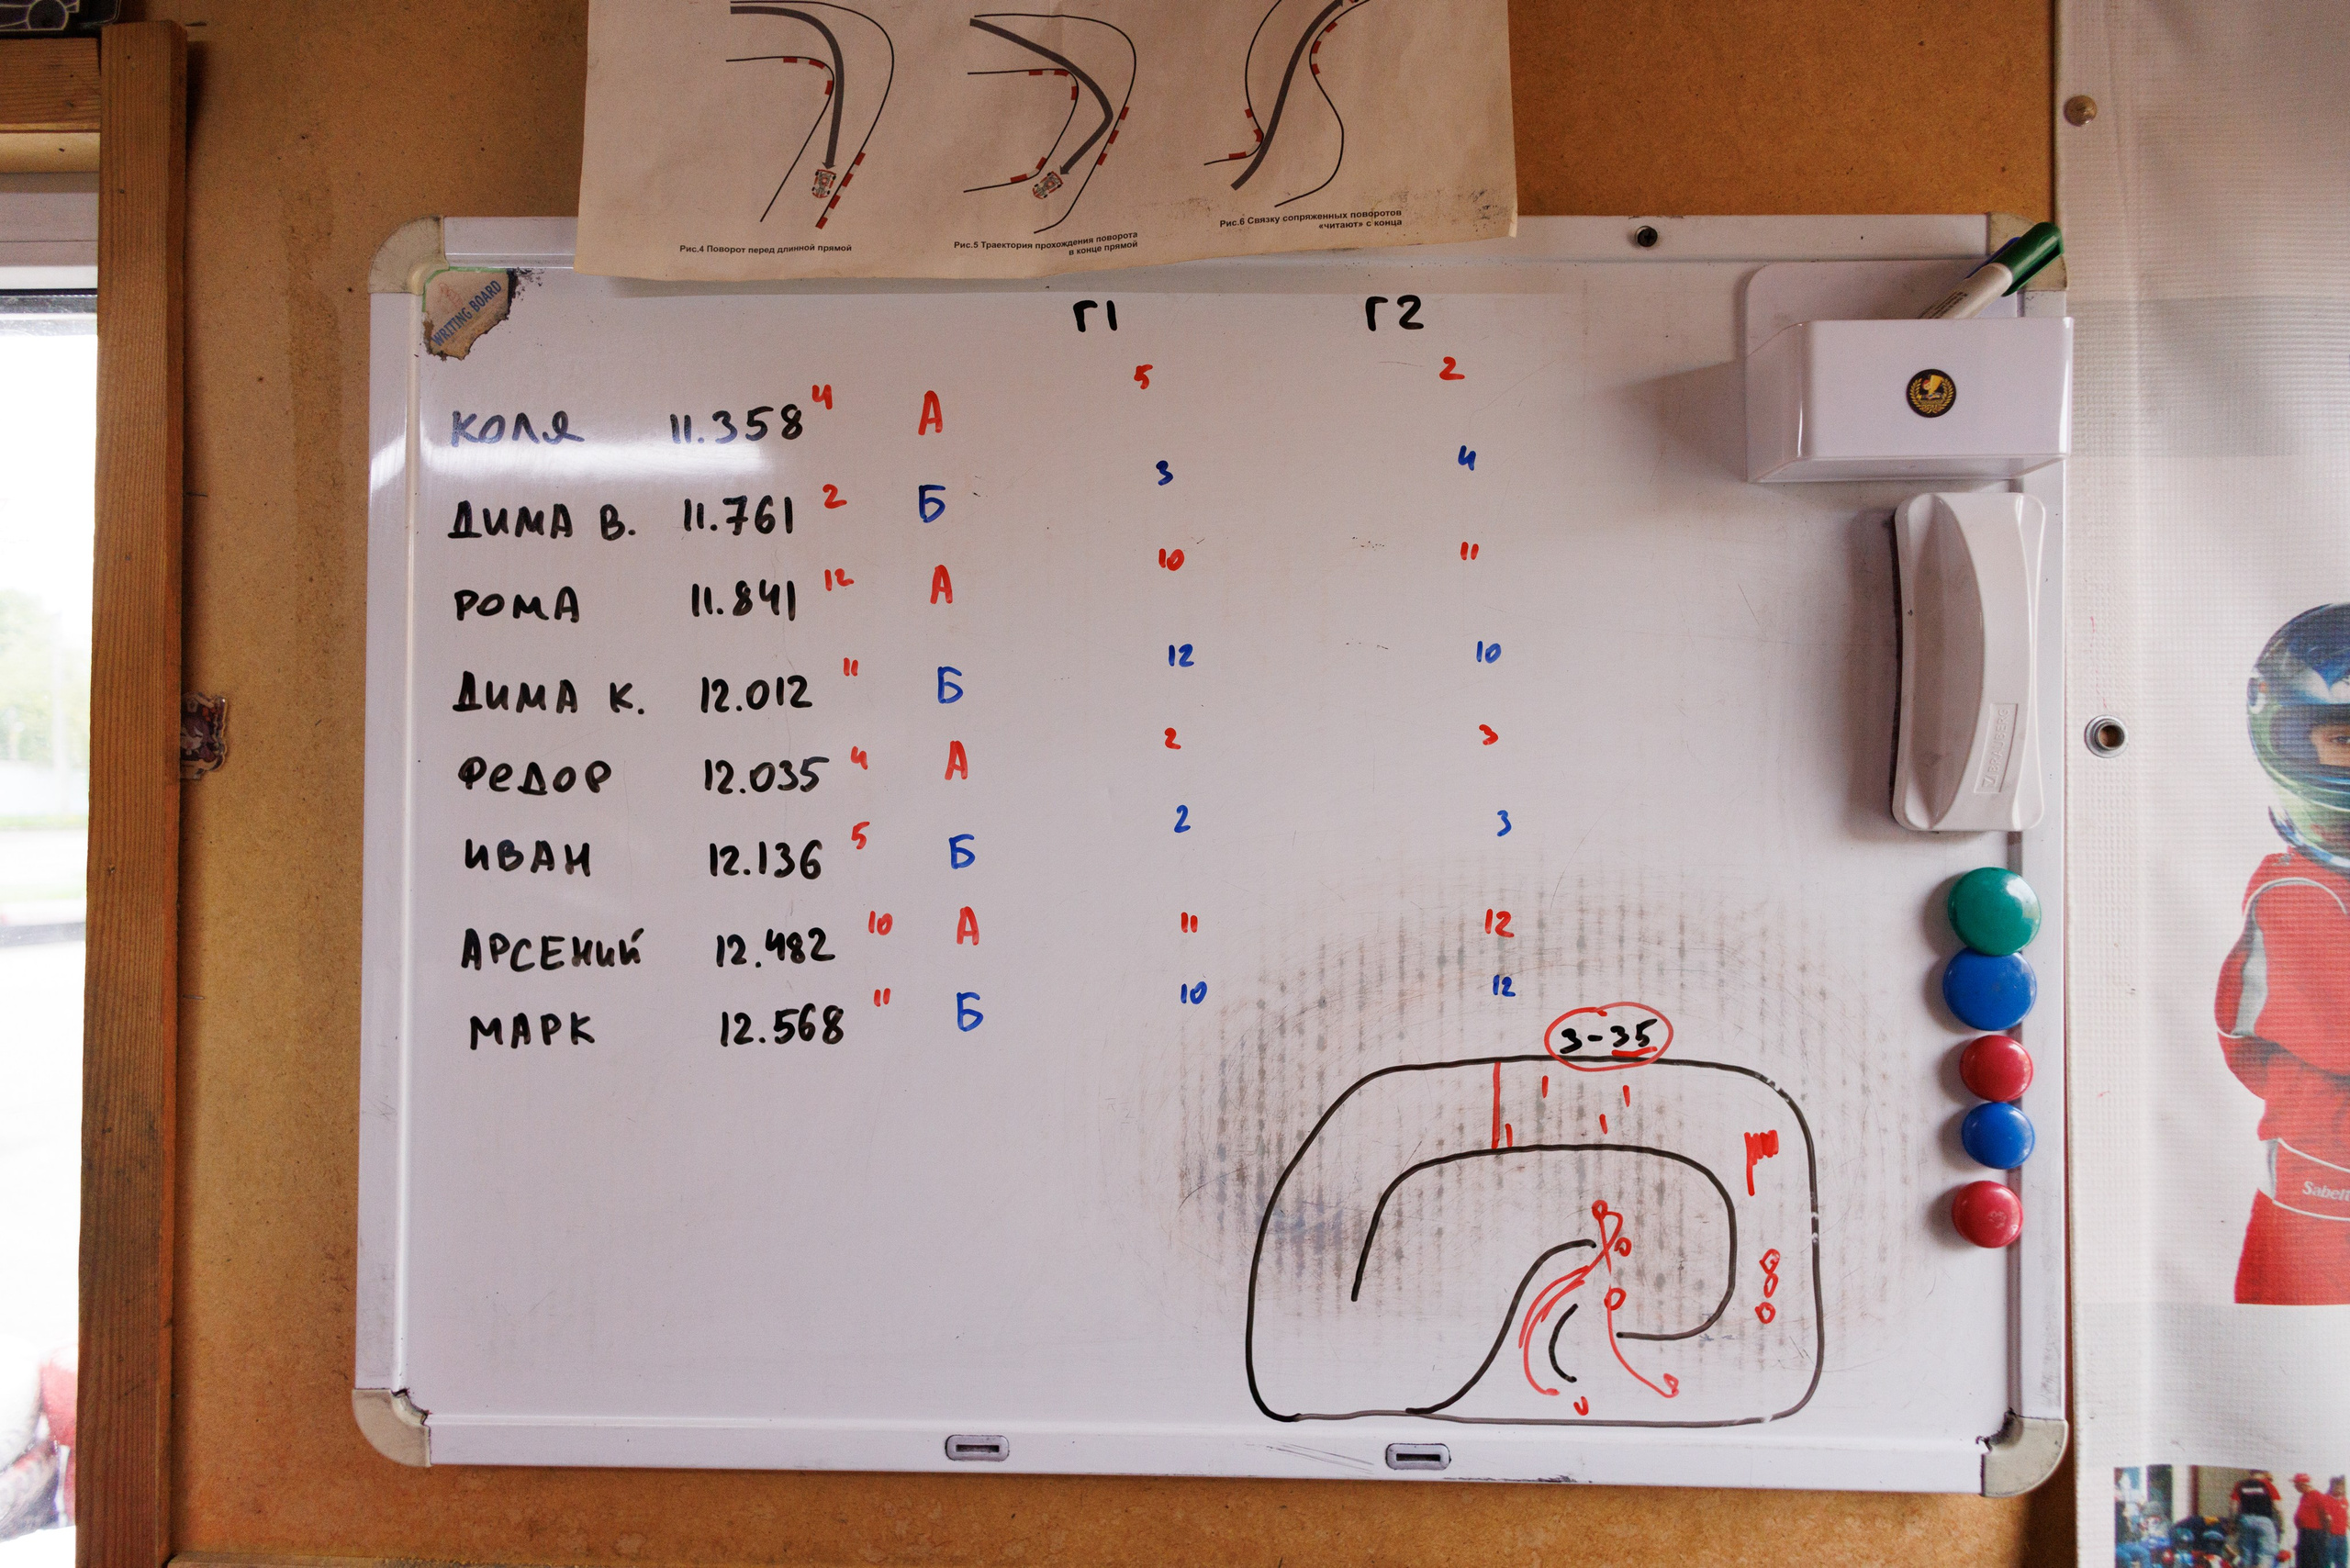 Рис.4 Поворот перед длинной прямой
Рис.5 Траектория прохождения поворота
в конце прямой
Рис.6 Связку сопряженных поворотов
«читают» с конца
WRITING BOARD
Г1 Г2
КОЛЯ 11.358 4 А 5 2
ДИМА В. 11.761 2 Б 3 4
РОМА 11.841 12 А 10 11
ДИМА К. 12.012 11 Б 12 10
ФЕДОР 12.035 4 А 2 3
ИВАН 12.136 5 Б 2 3
АРСЕНИЙ 12.482 10 А 11 12
МАРК 12.568 11 Б 10 12
3-35
BRAUBERG
Sabelt